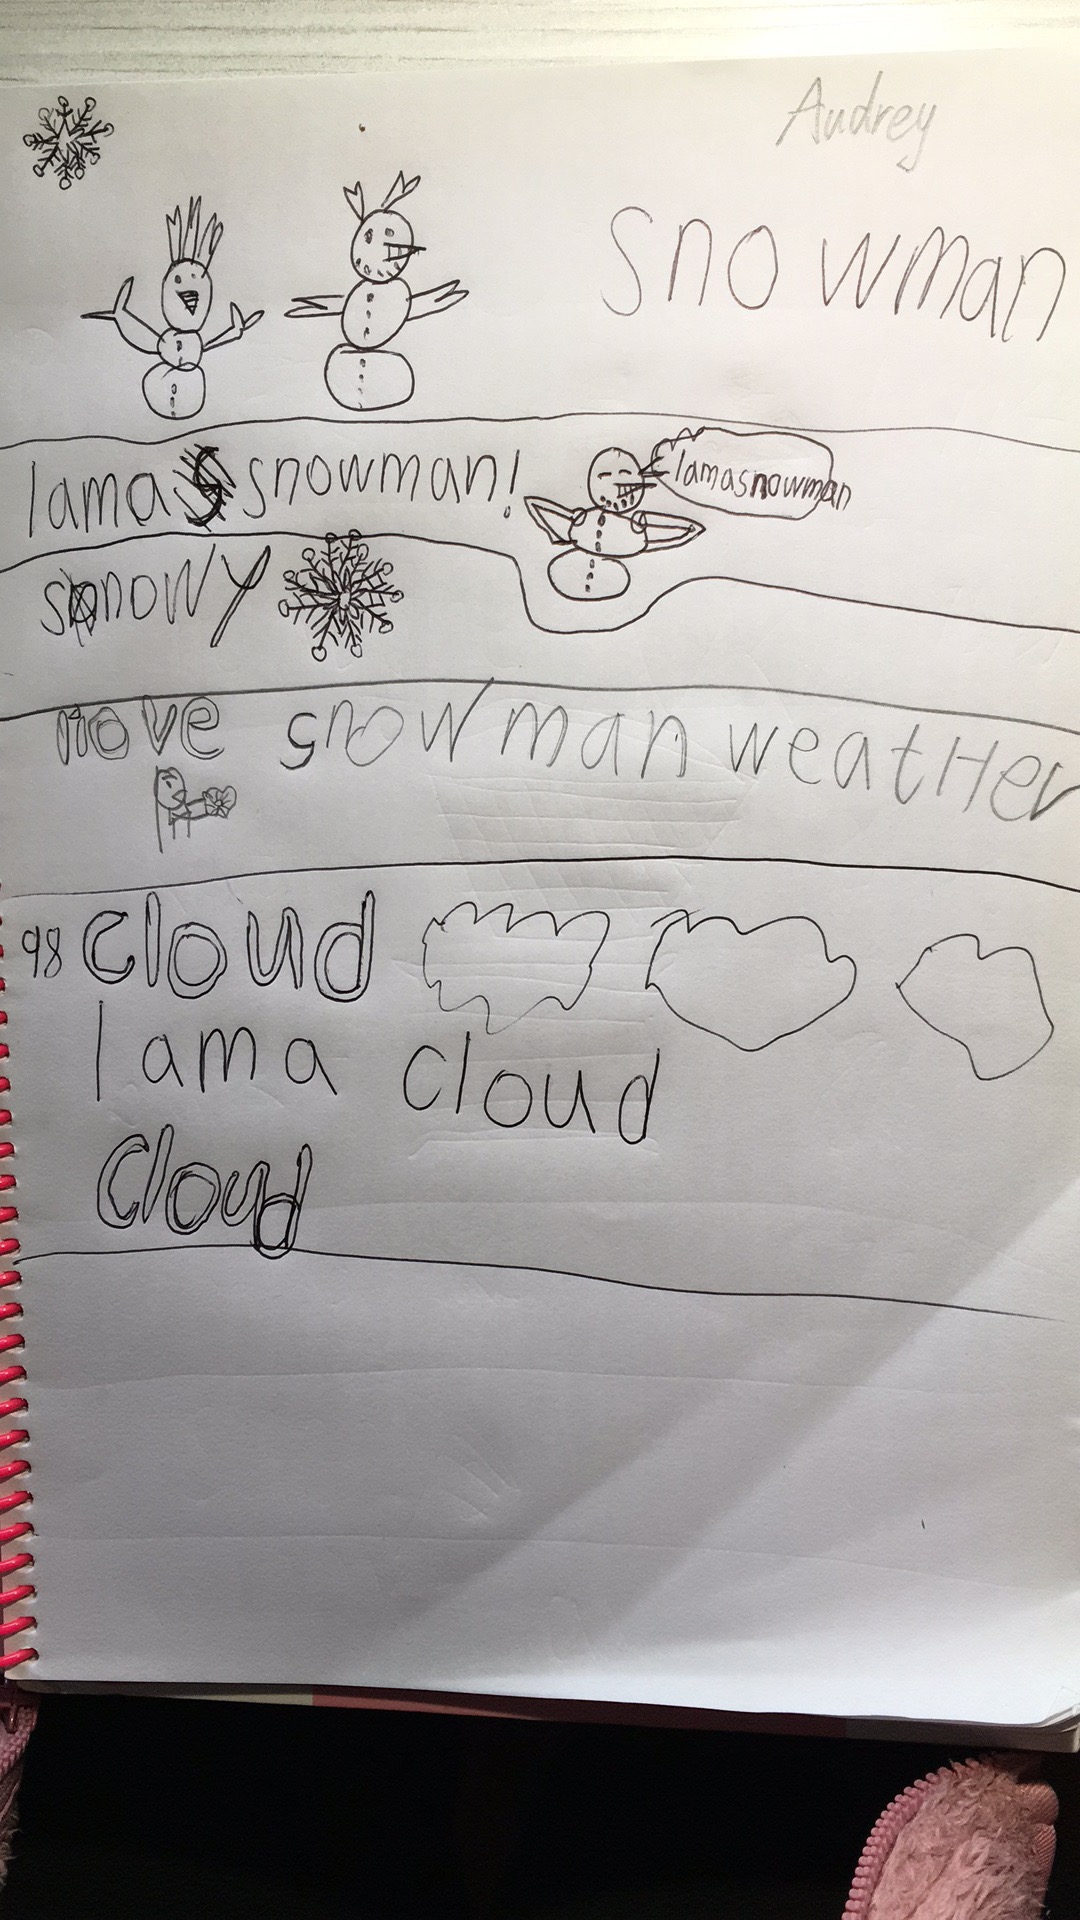 Audrey
snowman
I am a snowman!
I am a snowman
snowy
move snowman weatHer
98 cloud
I am a cloud
cloud